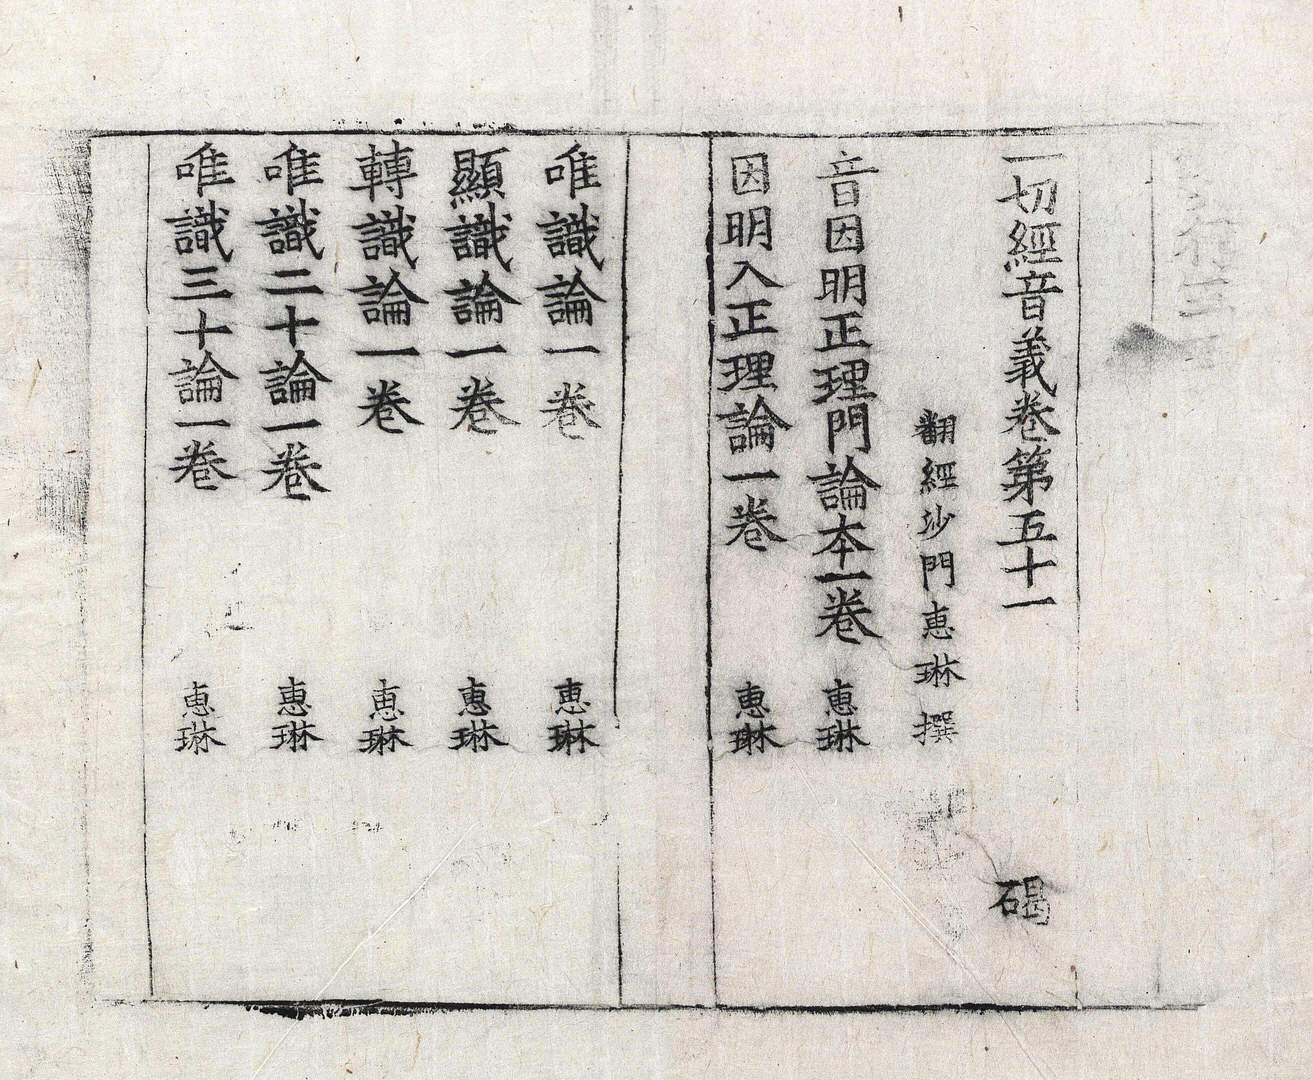 一切經音義卷第五十一 碣
翻經沙門惠琳撰
音因明正理門論本一卷 惠琳
因明入正理論一卷 惠琳
唯識論一卷 惠琳
顯識論一卷 惠琳
轉識論一卷 惠琳
唯識二十論一卷 惠琳
唯識三十論一卷 惠琳